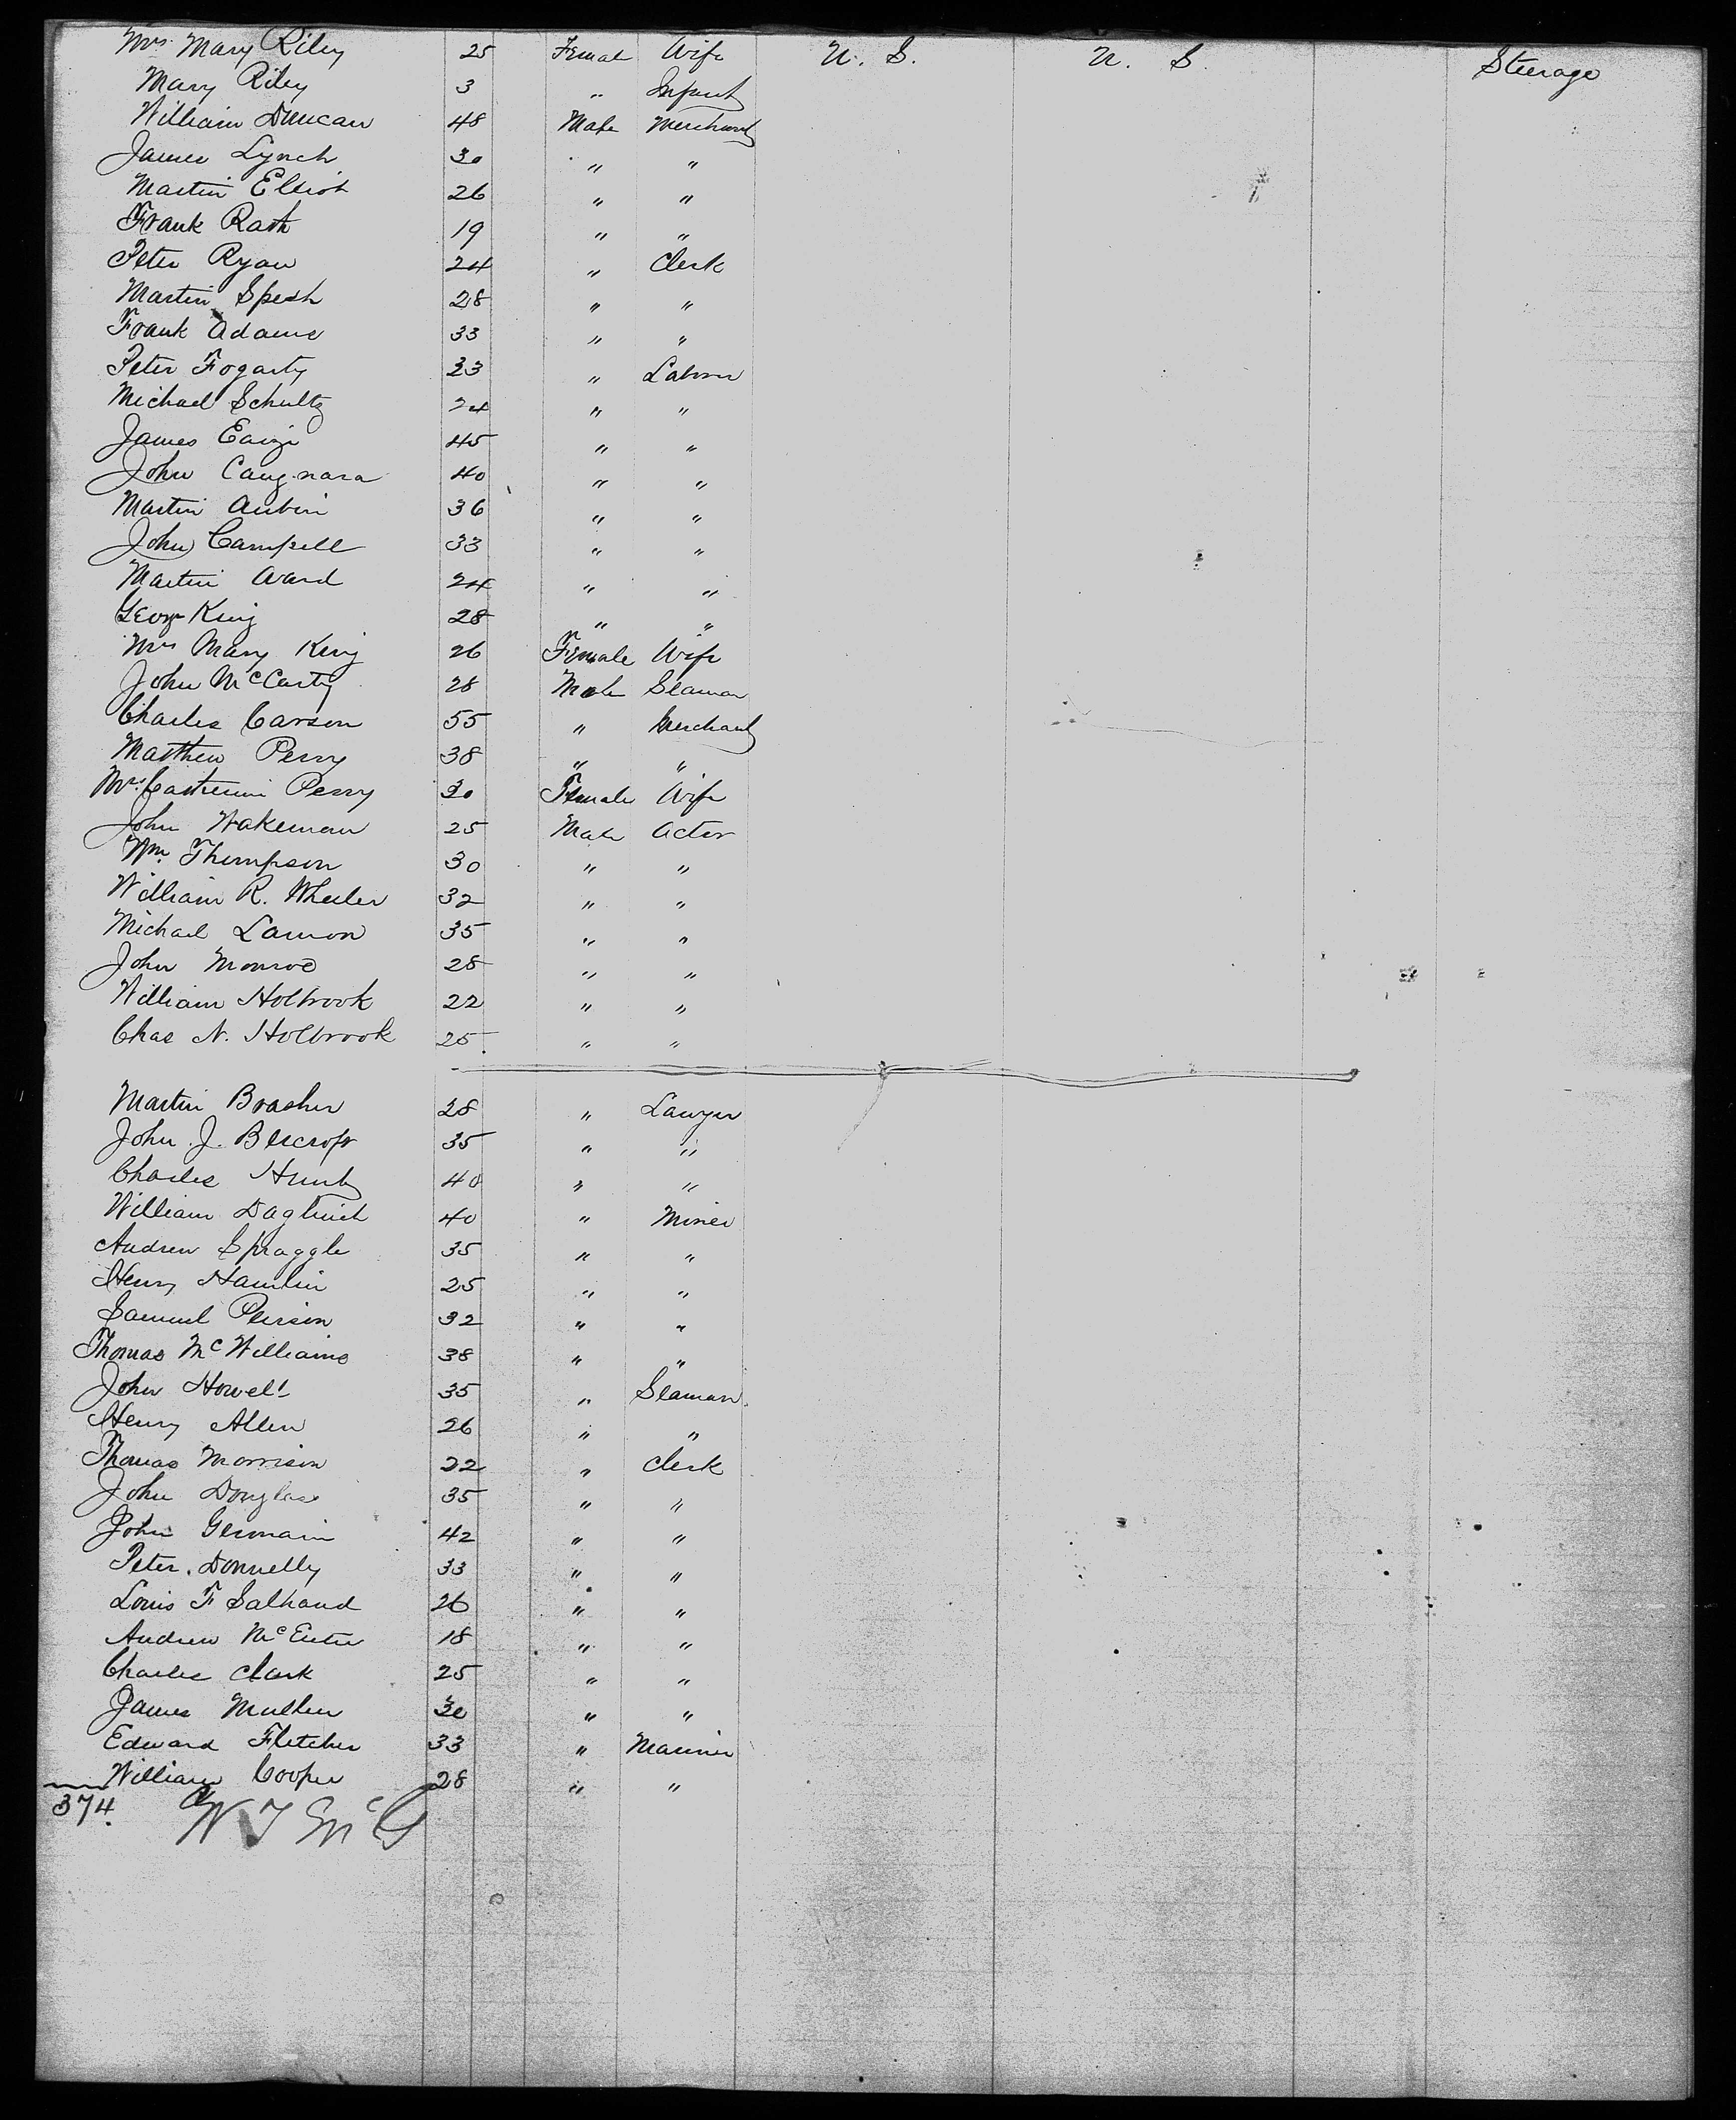 Mrs. Mary Riley 25 Female Wife U. S. U. S. Steerage
Mary Riley 3 " Infant
William Duncan 48 Male Merchant
James Lynch 30 " "
Martin Elliot 26 " "
Frank Rath 19 " "
Peter Ryan 24 " Clerk
Martin Spesh 28 " "
Frank Adams 33 " "
Peter Fogarty 33 " Laborer
Michael Schultz 24 " "
James 45 " "
John 40 " "
Martin Aubin 36 " "
John Campell 33 " "
Martin Ward 24 " "
George King 28 " "
Mrs Mary King 26 Female Wife
John McCarty 28 Male Seaman
Charles Carson 55 " Merchant
Matthew Perry 38 " "
Mrs. Catherine Perry 30 Female Wife
John Wakeman 25 Male Actor
Wm. Thompson 30 " "
William R. Wheeler 32 " "
Michael Lamon 35 " "
John Monroe 28 " "
William Holbrook 22 " "
Chas N. Holbrook 25 " "
Martin Brasher 28 " Lawyer
John J. Bescroft 35 " "
Charles Hunt 40 " "
William 40 " Miner
Andrew Spraggle 35 " "
Henry Hamlin 25 " "
Samuel Peirson 32 " "
Thomas McWilliams 38 " "
John Howell 35 " Seaman
Henry Allen 26 " "
Thomas Morrison 22 " Clerk
John Douglass 35 " "
John Germain 42 " "
Peter Donnelly 33 " "
Louis F Salhand 26 " "
Andrew McEntee 18 " "
Charles Clark 25 " "
James Mullen 30 " "
Edward Fletcher 33 " Mariner
William Cooper 28 " "
374.